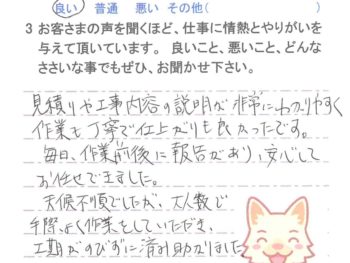 良い 普通 悪い その他(    )
3 お客さまの声を聞くほど、仕事に情熱とやりがいを
与えて頂いています。 良いこと、悪いこと、どんな
ささいな事でもぜひ、お聞かせ下さい。
見積りや工事内容の説明が非常にわかりやすく
作業も丁寧で仕上がりも良かったです。
毎日、作業前後に報告があり、安心して
お任せできました。
天候不順でしたが、大人数で
手際よく作業をしていただき、
工期がのびずに済み助かりました